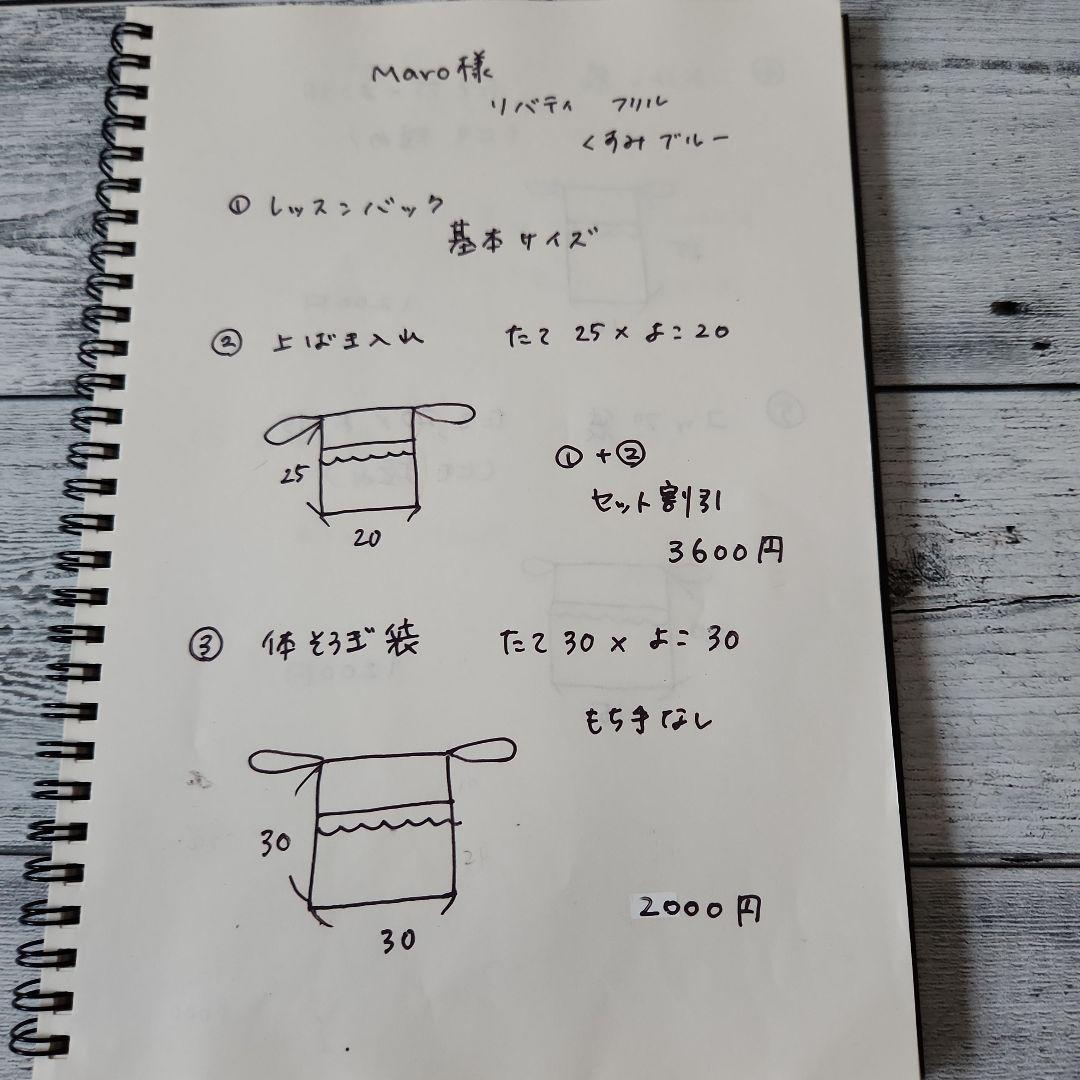 Maro様
リバティ フリル
くすみブルー
① レッスンバック
基本サイズ
② 上ばき入れ たて 25 × よこ 20
25
20
①+②
セット割引
3600円
③ 体そうぎ袋 たて 30 × よこ 30
もち手なし
30
30
2000円